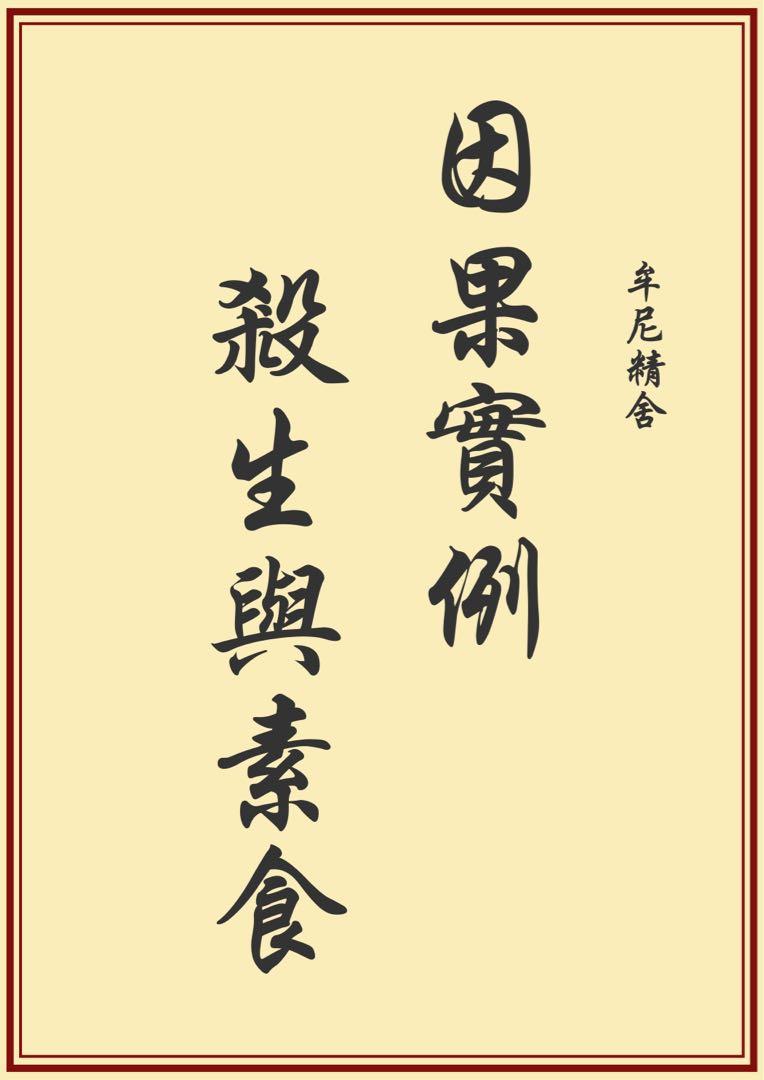 牟尼精舍
因果實例
殺生與素食